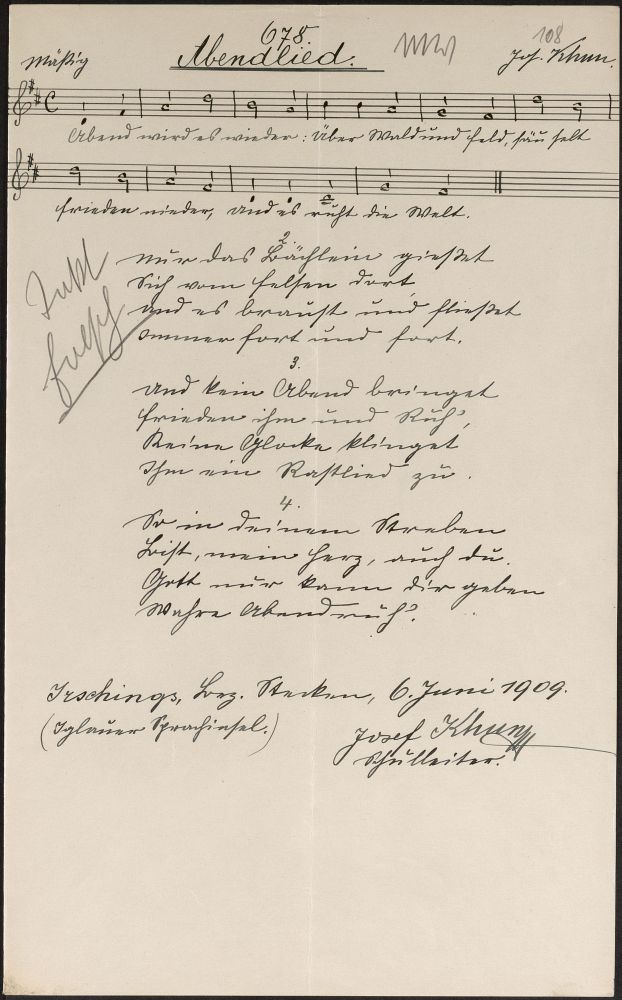 678.
108
Mäßig
Abendlied.
Jos. Khun.
Abend wird es wieder: Über Wald und Feld, säuselt
Frieden nieder, und es ruht die Welt.
2.
Nur das Bächlein gießet
Sich vom Felsen dort
Und es braust und fließet
Immer fort und fort.
3.
Und kein Abend bringet
Frieden ihm und Ruh',
Keine Glocke klinget
Ihm ein Rastlied zu.
4.
So in deinem Streben
Bist, mein Herz, auch du.
Gott nur kann dir geben
Wahre Abendruh'.
Text
falsch
Irschings, Bez. Stecken, 6. Juni 1909.
(Iglauer Sprachinsel.)
Josef Khun
Schulleiter.